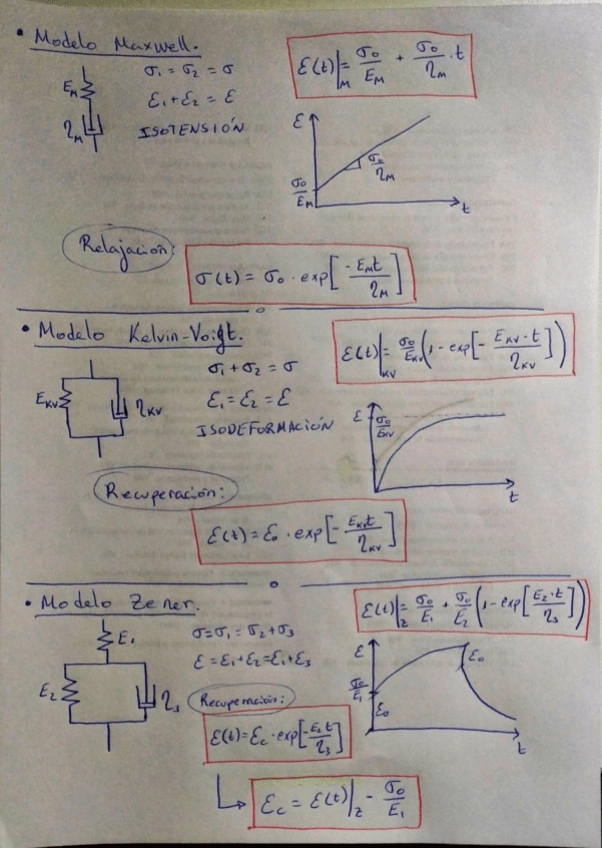 • Modelo Maxwell.
E_M
η_M
σ₁ = σ₂ = σ
ε₁ + ε₂ = ε
ISOTENSIÓN
ε(t)|_M = σ₀/E_M + σ₀/η_M · t
ε
σ₀/η_M
σ₀/E_M
t
Relajación:
σ(t) = σ₀ · exp[-E_M t/η_M]
• Modelo Kelvin-Voigt.
E_KV
η_KV
σ₁ + σ₂ = σ
ε₁ = ε₂ = ε
ISODEFORMACIÓN
ε(t)|_KV = σ₀/E_KV (1 - exp[- E_KV · t/η_KV])
ε
σ₀/E_KV
t
Recuperación:
ε(t) = ε₀ · exp[- E_KV t/η_KV]
• Modelo Zener.
E₁
E₂
η₃
σ = σ₁ = σ₂ + σ₃
ε = ε₁ + ε₂ = ε₁ + ε₃
ε(t)|_Z = σ₀/E₁ + σ₀/E₂ (1 - exp[E₂ · t/η₃])
ε
ε₀
σ₀/E₁
ε₀
t
Recuperación:
ε(t) = ε_c · exp[-E₂ t/η₃]
ε_c = ε(t)|_Z - σ₀/E₁